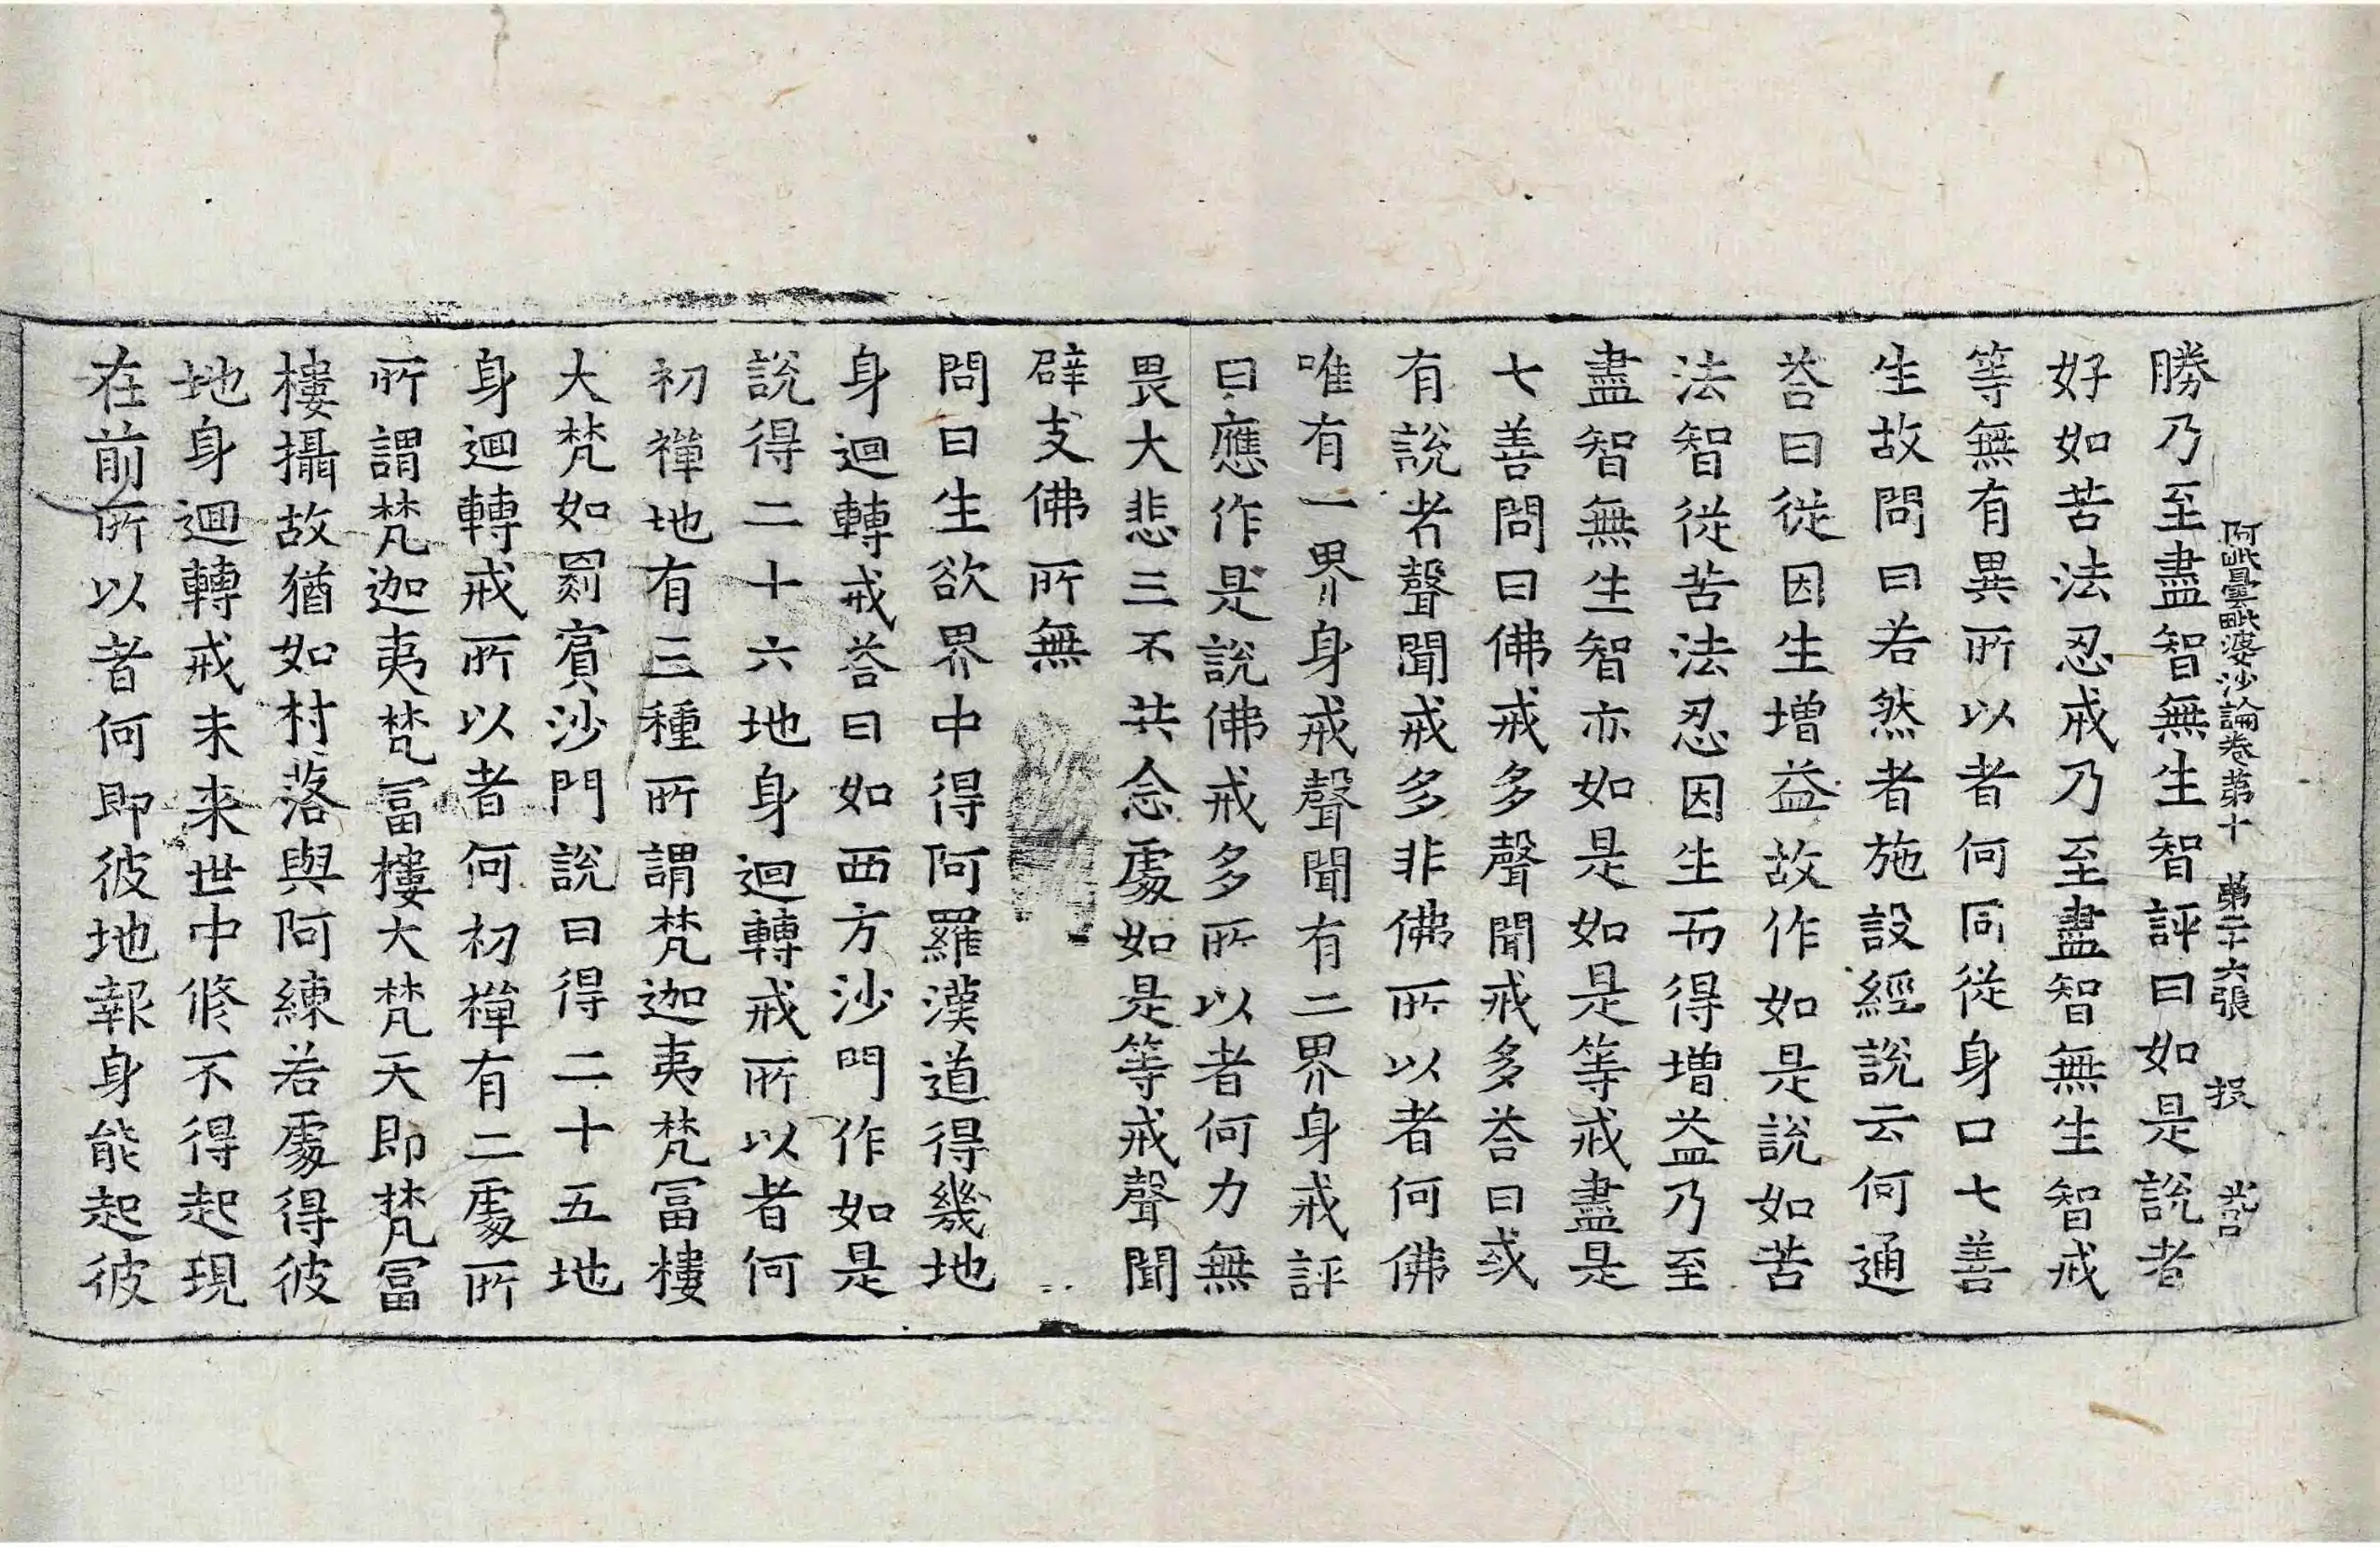 阿毗曇毗婆沙論卷苐十 苐二十六張 投
勝乃至盡智無生智評曰如是說者
好如苦法忍戒乃至盡智無生智戒
等無有異所以者何同從身口七善
生故問曰若然者施設經說云何通
荅曰從因生增益故作如是說如苦
法智從苦法忍因生而得增益乃至
盡智無生智亦如是如是等戒盡是
七善問曰佛戒多聲聞戒多荅曰或
有說者聲聞戒多非佛所以者何佛
唯有一界身戒聲聞有二界身戒評
曰應作是說佛戒多所以者何力無
畏大悲三不共念處如是等戒聲聞
辟支佛所無
問曰生欲界中得阿羅漢道得幾地
身迴轉戒荅曰如西方沙門作如是
說得二十六地身迴轉戒所以者何
初禪地有三種所謂梵迦夷梵冨樓
大梵如罽賓沙門說曰得二十五地
身迴轉戒所以者何初禪有二處所
所謂梵迦夷梵冨樓大梵天即梵冨
樓攝故猶如村落與阿練若處得彼
地身迴轉戒未来世中修不得起現
在前所以者何即彼地報身能起彼